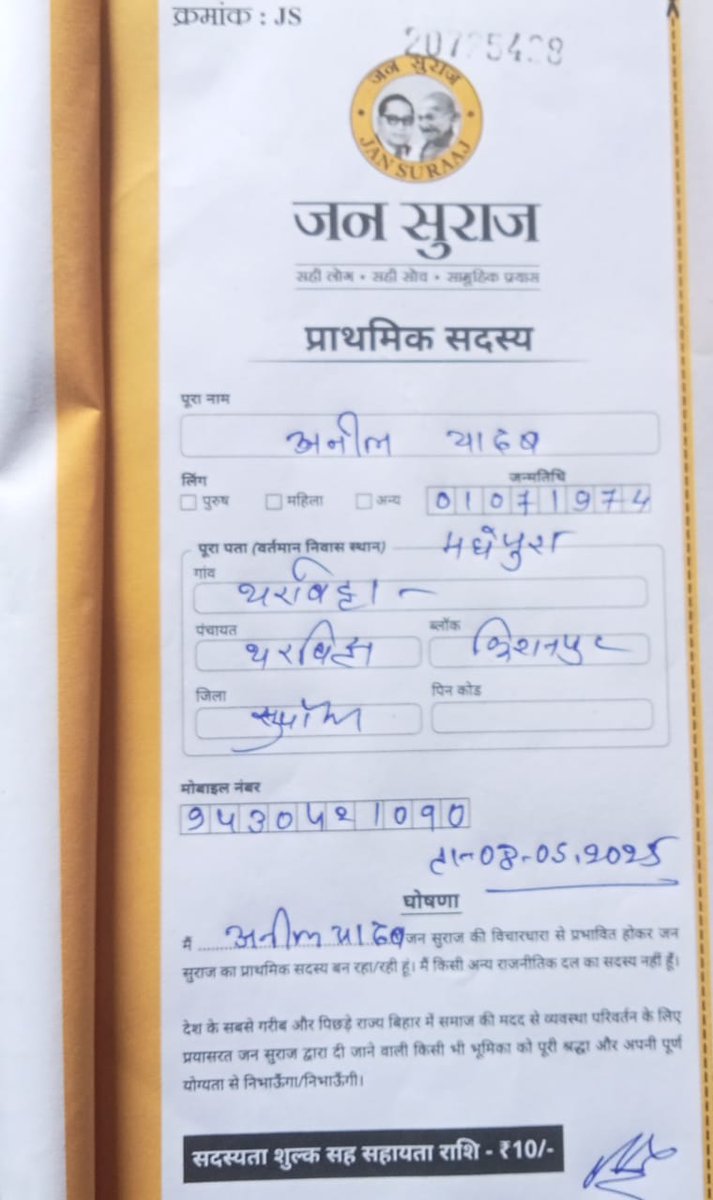 क्रमांक : JS
जन सुराज
JAN SURAAJ
जन सुराज
सही लोग • सही सोच • सामूहिक प्रयास
प्राथमिक सदस्य
पूरा नाम
अनील यादब
लिंग जन्मतिथि
पुरुष महिला अन्य 01071974
पूरा पता (वर्तमान निवास स्थान) मधेपुरा
गांव
थरबिट्टा -
पंचायत ब्लॉक
थरबिट्टा किशनपुर
जिला पिन कोड
सुपौल
मोबाइल नंबर
9430421090
ता-08-05.2025
घोषणा
मैं ........अनील यादब जन सुराज की विचारधारा से प्रभावित होकर जन
सुराज का प्राथमिक सदस्य बन रहा/रही हूं। मैं किसी अन्य राजनीतिक दल का सदस्य नहीं हूँ।
देश के सबसे गरीब और पिछड़े राज्य बिहार में समाज की मदद से व्यवस्था परिवर्तन के लिए
प्रयासरत जन सुराज द्वारा दी जाने वाली किसी भी भूमिका को पूरी श्रद्धा और अपनी पूर्ण
योग्यता से निभाऊँगा/निभाऊँगी।
सदस्यता शुल्क सह सहायता राशि - ₹10/-